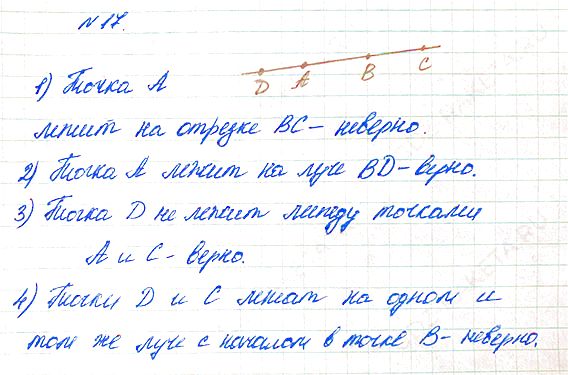 № 17.
1) Точка А
D A B C
лежит на отрезке ВС – неверно.
2) Точка А лежит на луче BD – верно.
3) Точка D не лежит между точками
А и С – верно.
4) Точки D и С лежат на одном и
том же луче с началом в точке В – неверно.